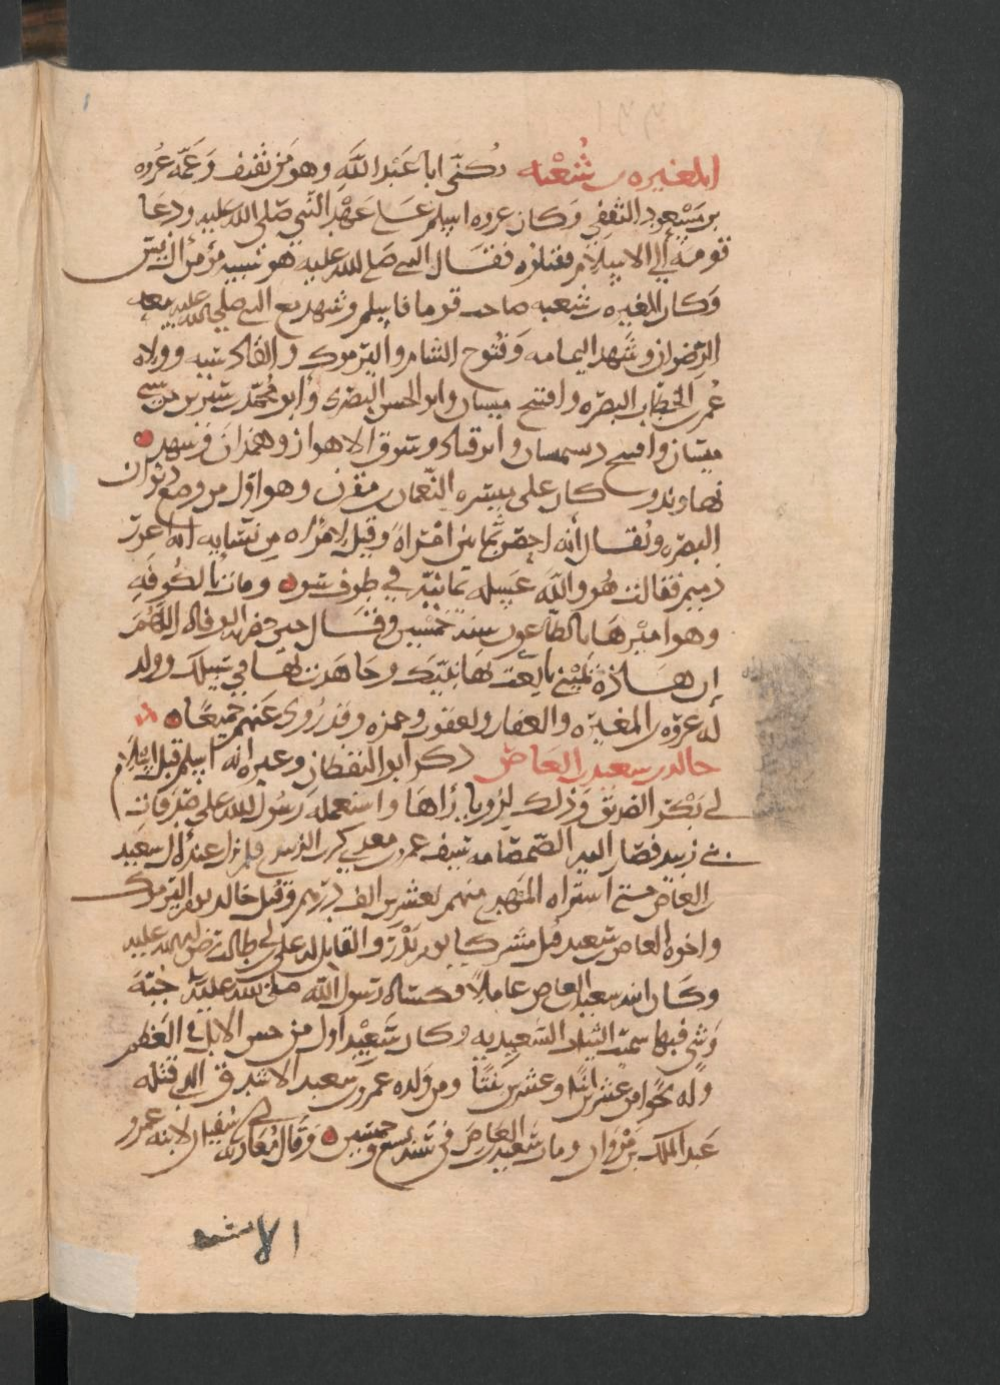 المغيره بن شعبه يكنى ابا عبد الله وهو من ثقيف وعمه عروه
بن مسعود الثقفي وكان عروه اسلم على عهد النبي صلى الله عليه ودعا
قومه الي الاسلام فقتلوه فقال النبي صلى الله عليه هو شبيه مؤمن ال يس
وكان المغيره بن شعبه صاحب قوما فاسلم وشهد مع النبي صلى الله عليه بيعه
الرضوان وشهد اليمامه وفتوح الشام واليرموك والقادسيه وولاه
عمر بن الخطاب البصره وافتتح ميسان وابو الحسن البصرى وابو محمد بن سيرين من سبي
ميسان وافتتح دستميسان وابرقباد وسوق الاهواز وهمذان وشهد
نهاوند وكان على ميسره النعمان بن مقرن وهو اول من وضع ديوان
البصره ويقال أنه احصن ثمانين امراة وقيل لامراه من نسايه انه اعور
دميم فقالت هو والله عسيله يمانيه في ظرف سو ومات بالكوفه
وهو اميرها بالطاعون سنه خمسين وقال حين حضرته الوفاه اللهم
إن هاذه يميني بايعت بها نبيك وجاهدت بها في سبيلك وولد
له عروه بن المغيره والعفار ويعفور وحمزه وقد روى عنهم جميعا
خالد بن سعيد بن العاص ذكر أبو اليقظان وغيره انه اسلم قبل اسلام
ابي بكر الصديق وذلك لرويا رأها واستعمله رسول الله على صدقات
بني زبيد فصار اليه الصمصامه سيف عمرو بن معدي كرب الزبيدي فلم يزل عند آل سعيد
بن العاص حتى اشتراه المهدي منهم بعشرين الف درهم وقتل خالد يوم اليرموك
واخوه العاص بن سعيد قتل مشركا يوم بدر والقاتل له علي بن ابي طالب رضي الله عليه
وكان ابنه سعيد بن العاص عاملا وكساه رسول الله صلى الله عليه جبة
وشي فبها سميت الثياب السعيديه وكان سعيد اول من خس الابل في العظم
وله نحوا من عشرين ابنا وعشرين بنتا ومن ولده عمرو بن سعيد الاشدق الذي قتله
عبد الملك بن مروان ومات سعيد بن العاص في سنه تسع وخمسين وقال معاويه بن ابي سفيان لابنه عمرو
الاشد